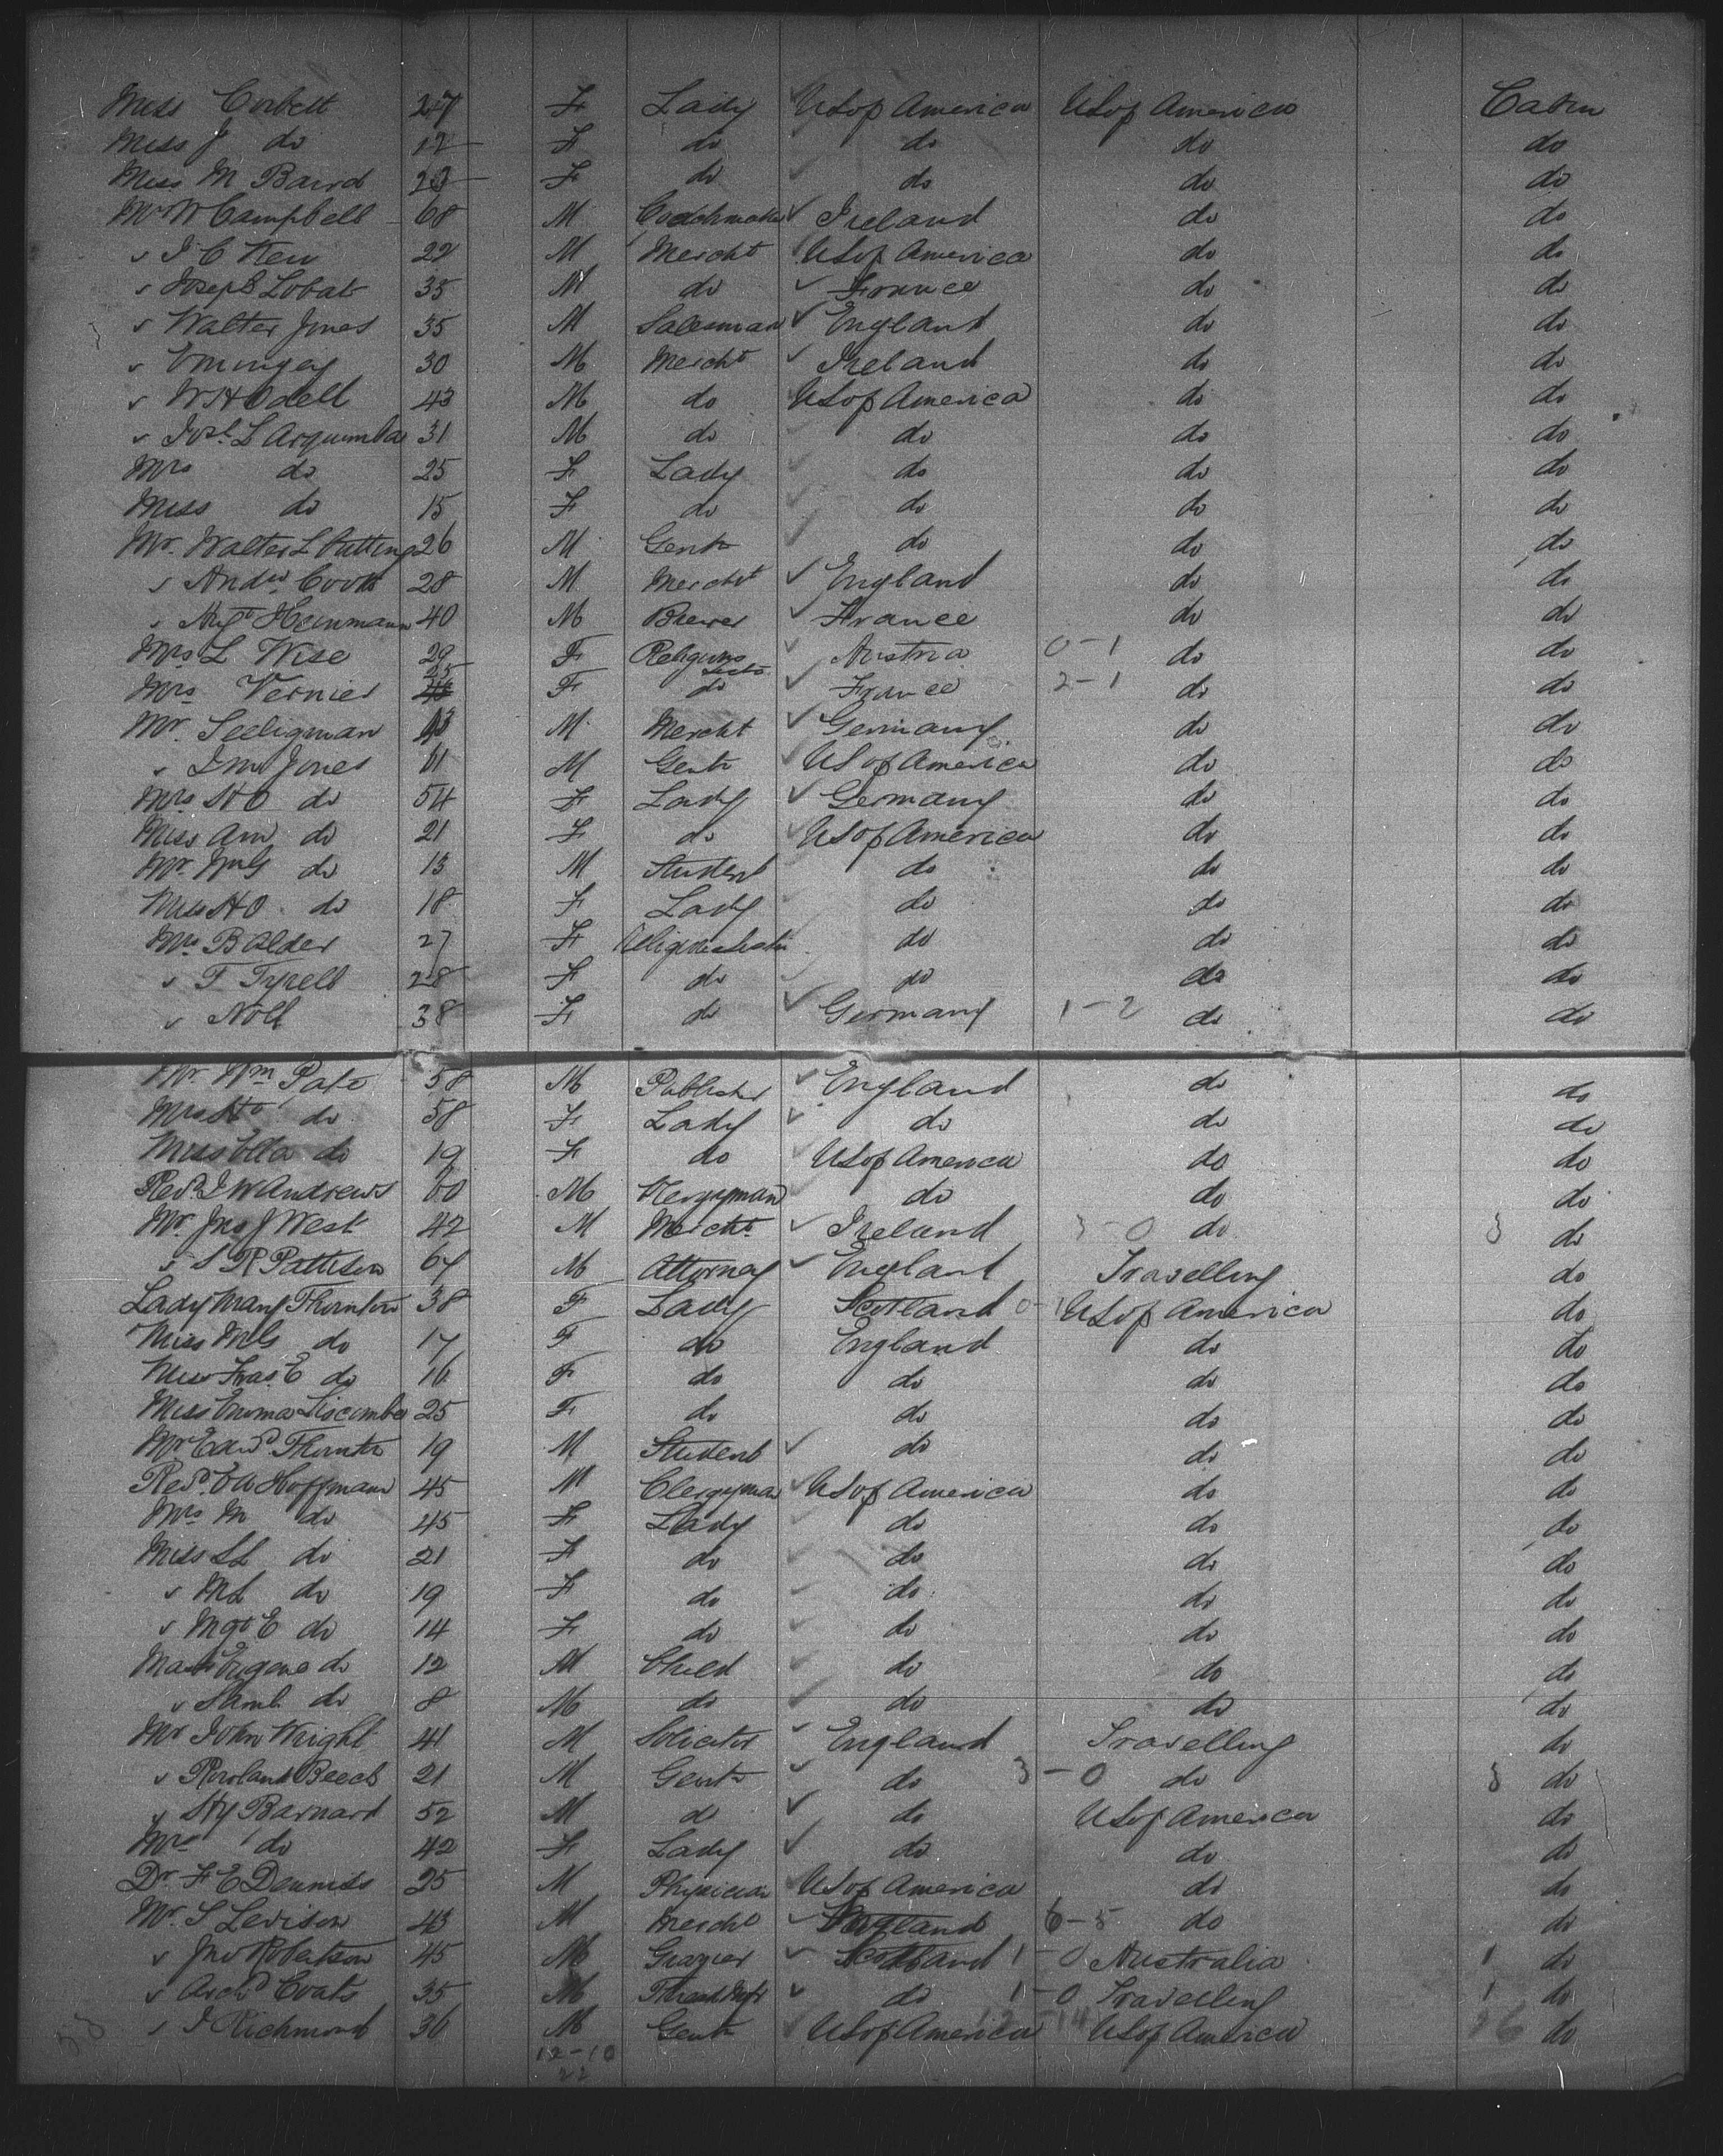 Miss Corbett 27 F Lady US of America US of America Cabin
Miss J do 12 F do do do do
Miss M Baird 23 F do do do do
Mr W Campbell 68 M Coachmaker Ireland do do
" J C Kew 22 M Mercht US of America do do
" Joseph Lobat 35 M do France do do
" Walter Jones 35 M Salesman England do do
" 30 M Mercht Ireland do do
" W H Odell 43 M do US of America do do
" Josh L Arquimbar 31 M do do do do
Mrs do 25 F Lady do do do
Miss do 15 F do do do do
Mr. Walter L Cutting 26 M Gentn do do do
" Andw. Cook 28 M Mercht England do do
" Augt Heinmann 40 M Brewer France do do
Mrs L Wise 29 F Religious Austria 0-1 do do
Mrs Vernier 25 F do France 2-1 do do
Mr. Seeligman M Mercht Germany do do
" Jones 61 M Gentn US of America do do
Mrs H O do 54 F Lady Germany do do
Miss Am do 21 F do US of America do do
Mr. WmG do 13 M Student do do do
Miss H O do 18 F Lady do do do
Mrs B Alder 27 F do do do
" F Tyrell 28 F do do do do
" Noll 38 F do Germany 1-2 do do
Mr. Wm Pate 58 M Publisher England do do
Mrs Ht do 58 F Lady do do do
Miss Ella do 19 F do US of America do do
Revd. J W Andrews 60 M Clergyman do do do
Mr. Jno J West 42 M Mercht. Ireland 3-0 do 3 do
" S R Pattison 67 M Attorney England Travelling do
Lady Mary Thornton 38 F Lady Scotland 0-1 US of America do
Miss MG do 17 F do England do do
Miss Fras. E do 16 F do do do do
Miss Emma Liscombe 25 F do do do do
Mr Edwd Thornton 19 M Student do do do
Revd. E A Hoffmann 45 M Clergyman US of America do do
Mrs M do 45 F Lady do do do
Miss S L do 21 F do do do do
" ML do 19 F do do do do
" Mgt E do 14 F do do do do
Mast Eugene do 12 M Child do do do
" Saml. do 8 M do do do do
Mr John Wright 41 M Solicitor England Travelling do
" Rowland Beech 21 M Gentn do 3-0 do 3 do
" Hy Barnard 52 M do do US of America do
Mrs do 42 F Lady do do do
Dr. F E Denniss 25 M Physician US of America do do
Mr. S Levison 43 M Mercht England 6-5 do do
" Jno Robertson 45 M Grazier Scotland 1-0 Australia 1 do
" Archd Coats 35 M Thread Mftr do 1-0 Travelling 1 do
" J Richmond 36 M Gentn US of America 12-14 US of America 26 do
12-10
22